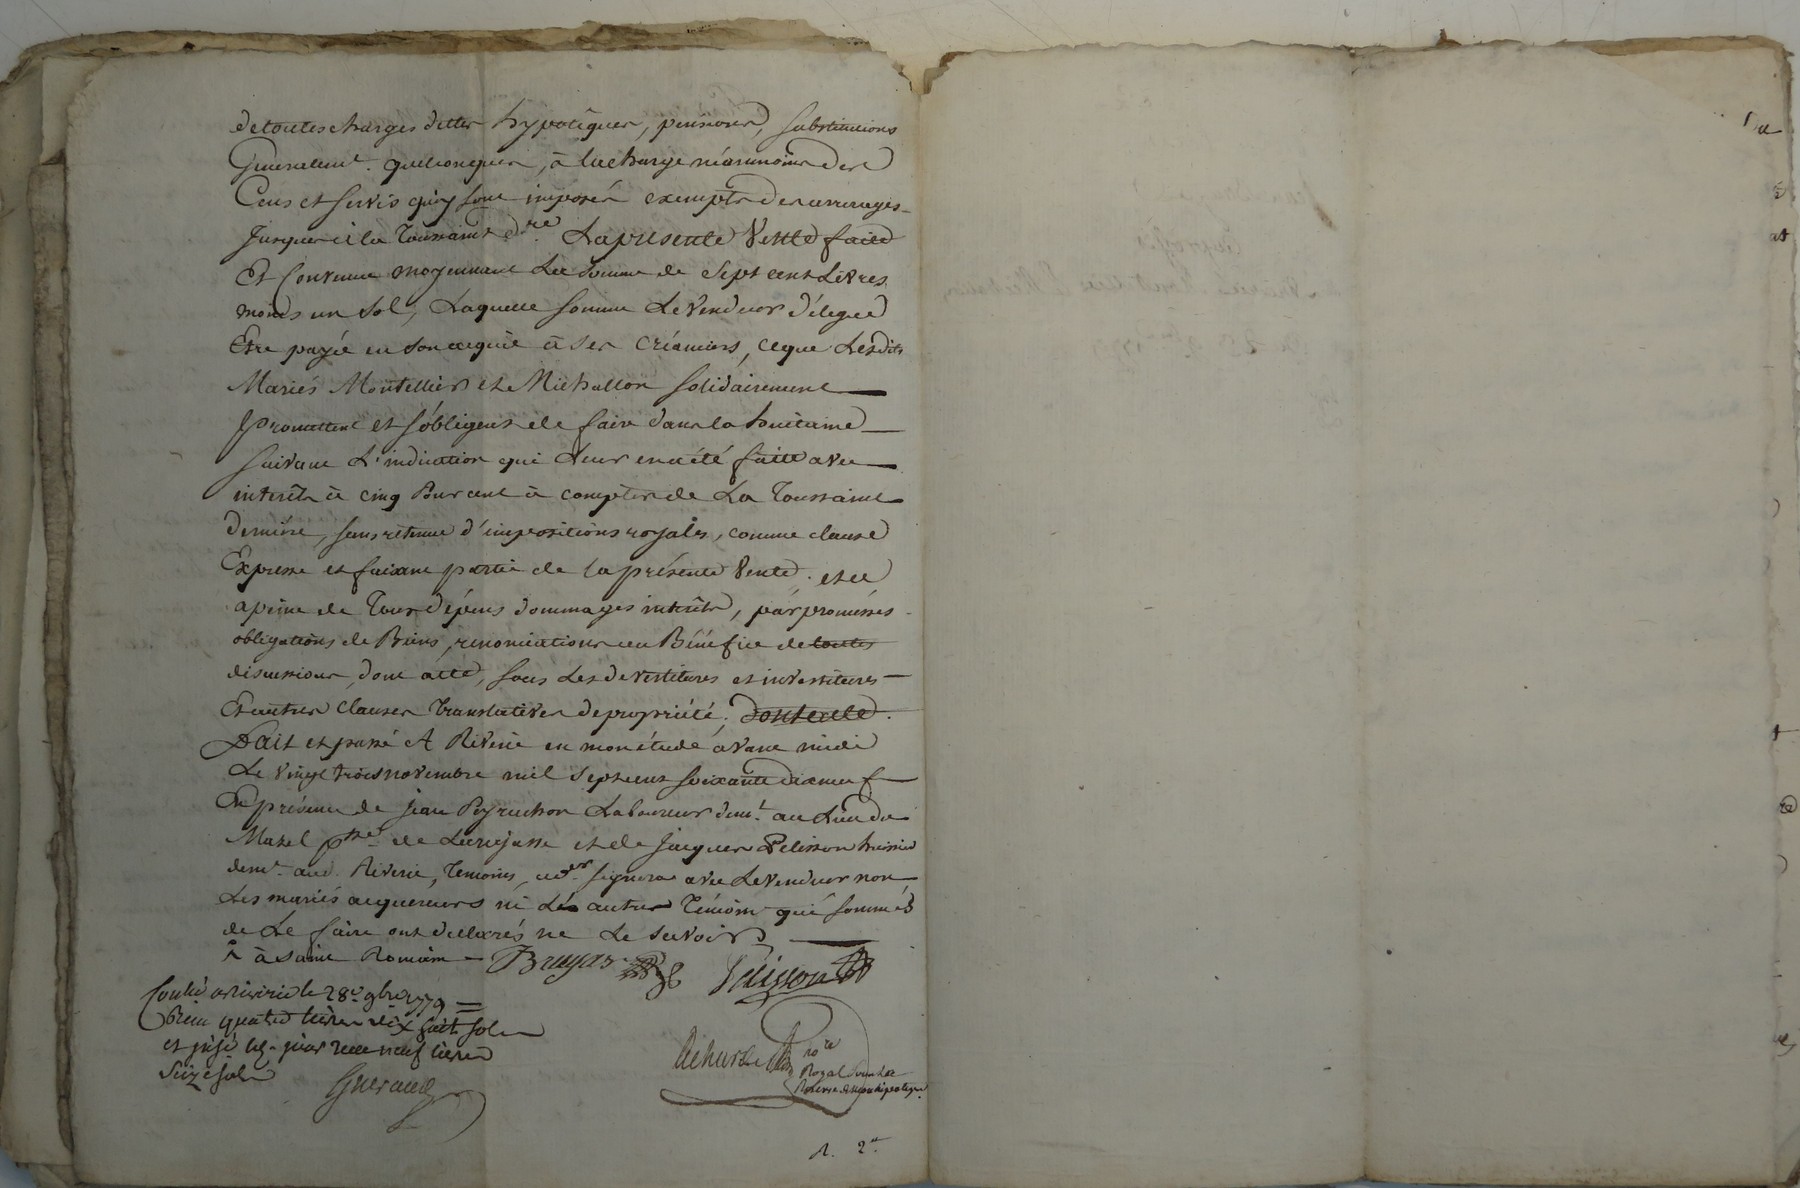 de toutes charges dettes hypotêques, pensions, substitutions
Generalemt. quelconques, à la charge néanmoins des
Cens et servis qui y sont imposés exempts des arrerages
Jusques à la Toussaint dre. La presente Vente faite
Et Convenue moyennant La Somme de Sept cent Livres
moins un Sol, Laquelle somme Le Vendeur délegue
Etre payée en son acquit à ses Créanciers, ce que Lesdits
Mariés Montellier et Michallon solidairement
promettent et s'obligent de faire dans la huitaine
suivant L'indication qui Leur en a été faitte avec
interêts à cinq Pour cent à compter de La Toussaint
Derniere, sans retenue d'impositions royales, comme clause
Expresse et faisant partie de la présente Vente. et ce
a peine de Tous dépens dommages interêts, par promesses
obligations de Biens, renonciations au Bénéfice de toutes
discussions, dont acte, sous Les devestitures et investitures
Et autres Clauses Translatives de propriété. dont acte.
Fait et passé A Riverie en mon étude avant midi
Le vingt trois novembre mil sept cent soixante dix neuf
En présence de jean Peyrachon Laboureur demt. au Lieu du
Mazel psse. de Larajasse et de Jacques Pelisson huissier
demt. aud. Riverie, Temoins, signera avec Le Vendeur non
Les mariés acquereurs ni Les autres Témoins qui sommés
de Le faire ont déclarés ne Le Savoir
à Saint Romain
Bruyas Pelisson
Conllé a riverie le 28e. 9bre 1779
Reçu quatre livres dix huit sols
et neuf livres
Seize sols
Gueraud
nore
Royal
R. 2.